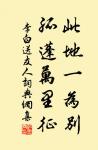 此地一為別
孤蓬萬里征
李白送友人詞典網集